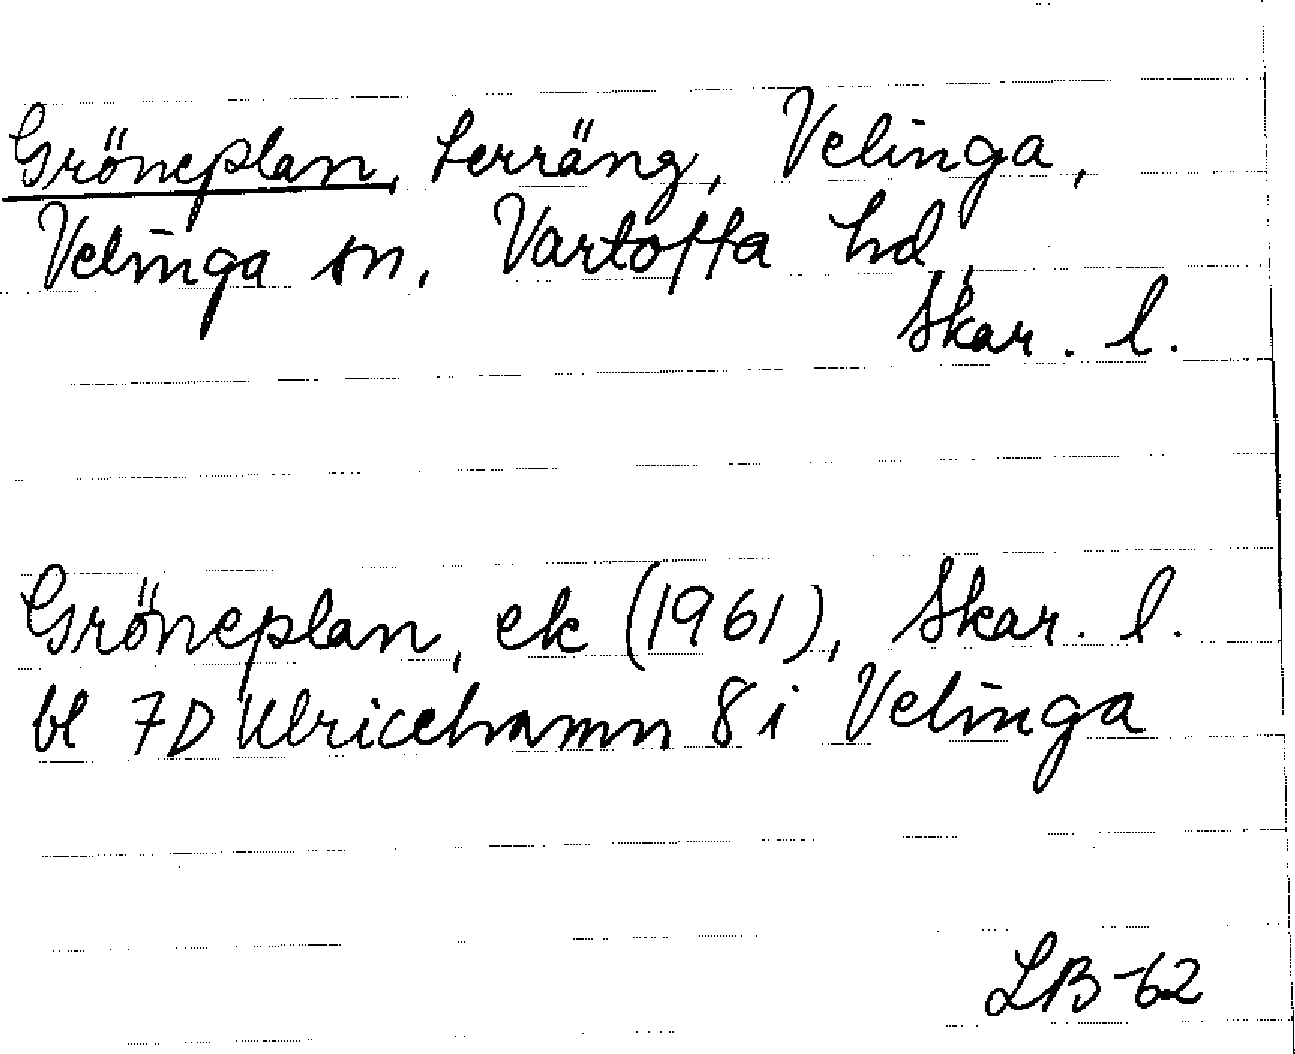 Gröneplan, Serräng, Velinga,
Velinga sn, Vartofta hd,
Skar. l.
Gröneplan, ek (1961), Skar. l.
bl 7D Ulricehamn 8 i Velinga
LB-62